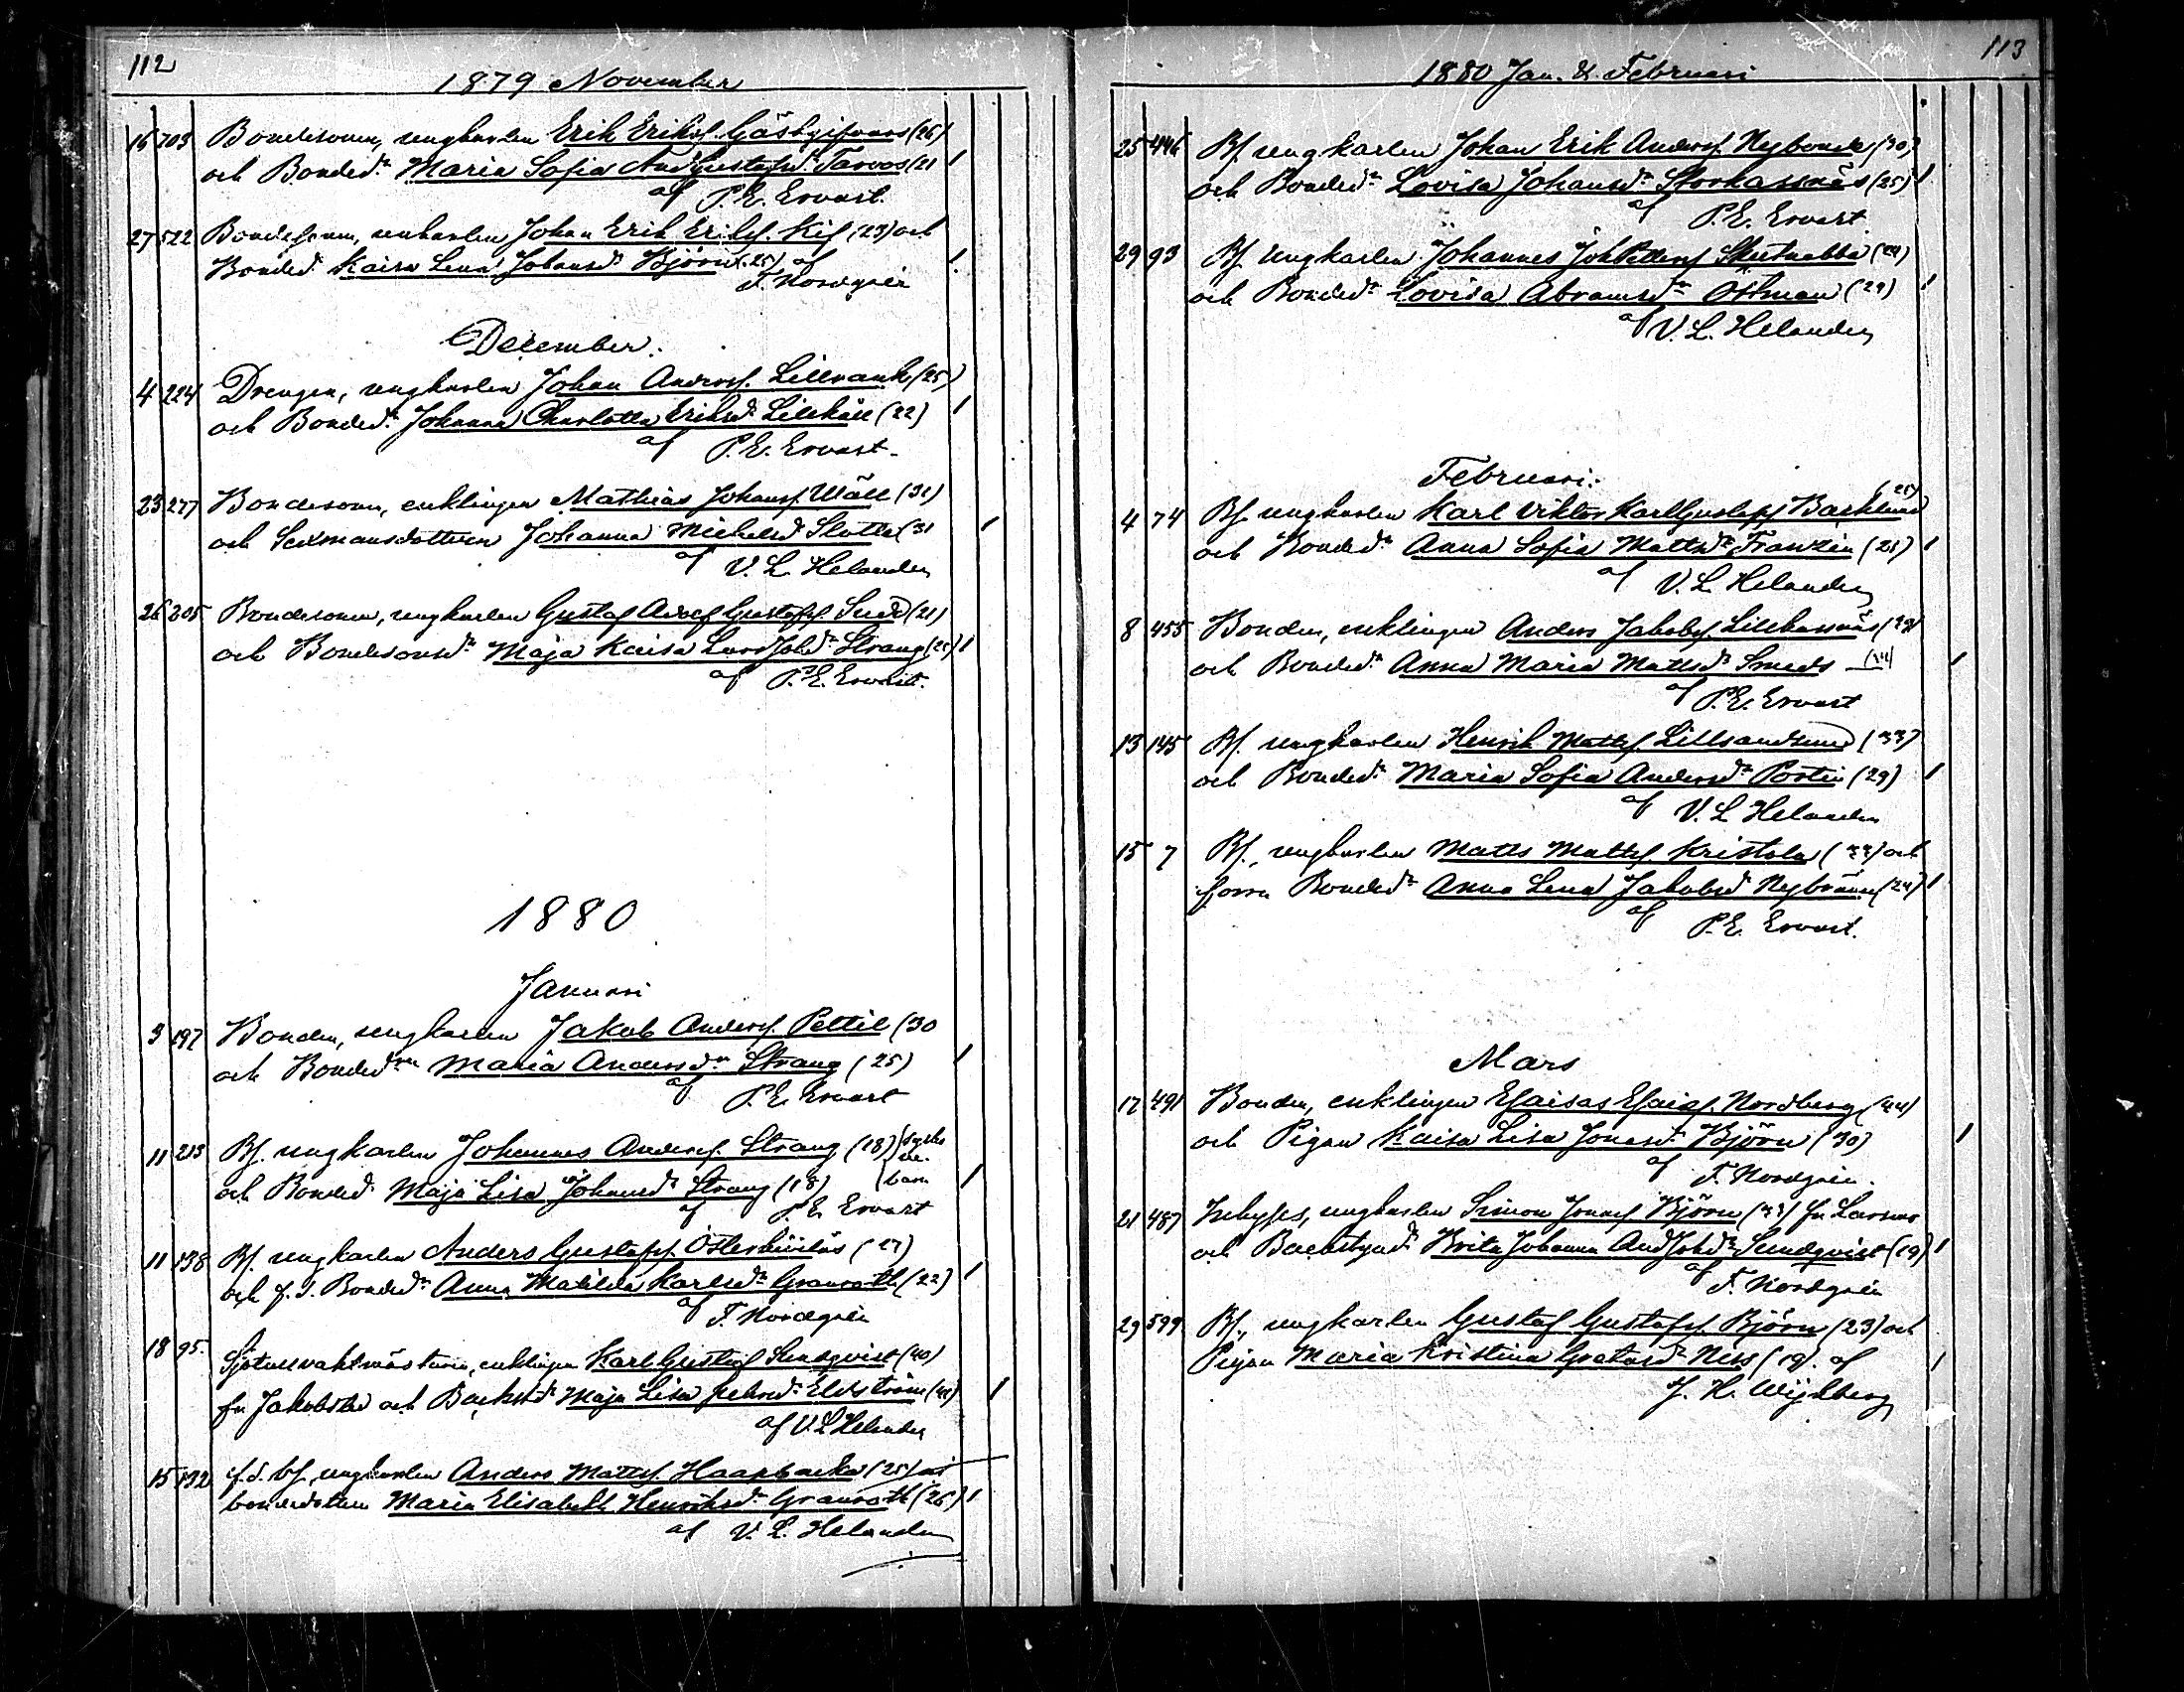 112
1879 November
16 703 Bondesonen, ungkarlen Erik Eriksf. Gästgifvars (26)
och Bonded:r Maria Sofia AndGustafsd:r Tarvos (21
af P. E. Ervast.
27 522 Bondesonen, unkarlen Johan Erik Eriksf. Kif (23) och
Bonded: Kaisa Lena Johansd: Björn (25) af
F. Nordgrén
December.
4 224 Drengen, ungkarlen Johan Andersf. Lillrank (25)
och Bonded:r Johanna Charlotta Eriksd: Lillkåll (22)
af P. E. Ervast.
23 277 Bondesonen, enklingen Mathias Johansf. Wäll (32)
och Sexmansdottren Johanna Michelsd Slotte (31
af V. L. Helander
26 305 Bondesonen, ungkarlen Gustaf Adolf Gustafsf. Sund (21)
och Bondesonsd:r Maja Kaisa Lars Johd:r Strang
af P. E. Ervast.
1880
Januari
3 197 Bonden, ungkarlen Jakob Andersf. Pettil (30
och Bonded:ren Maria Andersd:r Strang (25)
af P. E. Ervast
11 213 Bf. ungkarlen Johannes Andersf. Strang (18) syskone
och Bonded: Maja Lisa Johansd: Strang (18) barn
af P. E. Ervast
11 138 Bf. ungkarlen Anders Gustafsf. (27)
och f. d. Bonded:r Anna Matilda Karlsd:r Granroth (22)
af F. Nordgrén
18 95. enklingen Karl Gustaf Sundqvist (40)
fr. Jakobstad och Maja Lisa Elfström
af V. L Helander
15 132 f. d. bf. ungkarlen Anders Mattsf. Haapbacka (25) och
bondedottren Maria Elisabeth Henriksd:r Granroth (26)
af V. L. Helander
113
1880 Jan. & Februari
25 446 Bf. ungkarlen Johan Erik Andersf. Nybonde (30)
och Bonded:r Lovisa Johansd:r Storkassnäs (25)
af P. E. Ervast
29 93 Bf. ungkarlen Johannes JohPettersf Skutnabba
och Bonded:r Lovisa Abramsd:r Östman (29)
af V. L. Helander
Februari.
4 74 Bf. ungkarlen Karl Viktor KarlGustafsf Backlund
och Bonded:r Anna Sofia Mattsd:r Franzén
af V. L. Helander
8 455 Bonden, enklingen Anders Jakobsf. Lillkassnäs
och Bonded:r Anna Maria Mattsd:r Smeds
af P. E. Ervast
13 145 Bf. ungkarlen Henrik Mattsf. Lillsandsund (33)
och Bonded:r Maria Sofia Andersd:r Portin (29)
af V. L Helander
15 7 Bf., ungkarlen Matts Mattsf Kristola och
förra Bonded:r Anna Lena Jakobsd:r (24)
af P. E. Ervast.
Mars
12 491 Bonden, enklingen Esaisas Esaiasf. Nordberg (44)
och Pigan Kaisa Lisa Jonasd:r Björn (30)
af F. Nordgrén.
21 487 Inhyses, ungkarlen Simon Jonasf Björn fr. Larsmo
och Brita Johanna AndJohd:r Sundqvist (19)
af F. Nordgrén
29 599 Bf., ungkarlen Gustaf Gustafsf. Björn (23) och
Pigan Maria Kristina Gretasd:r Niss (19). af
J. H. Wijkberg